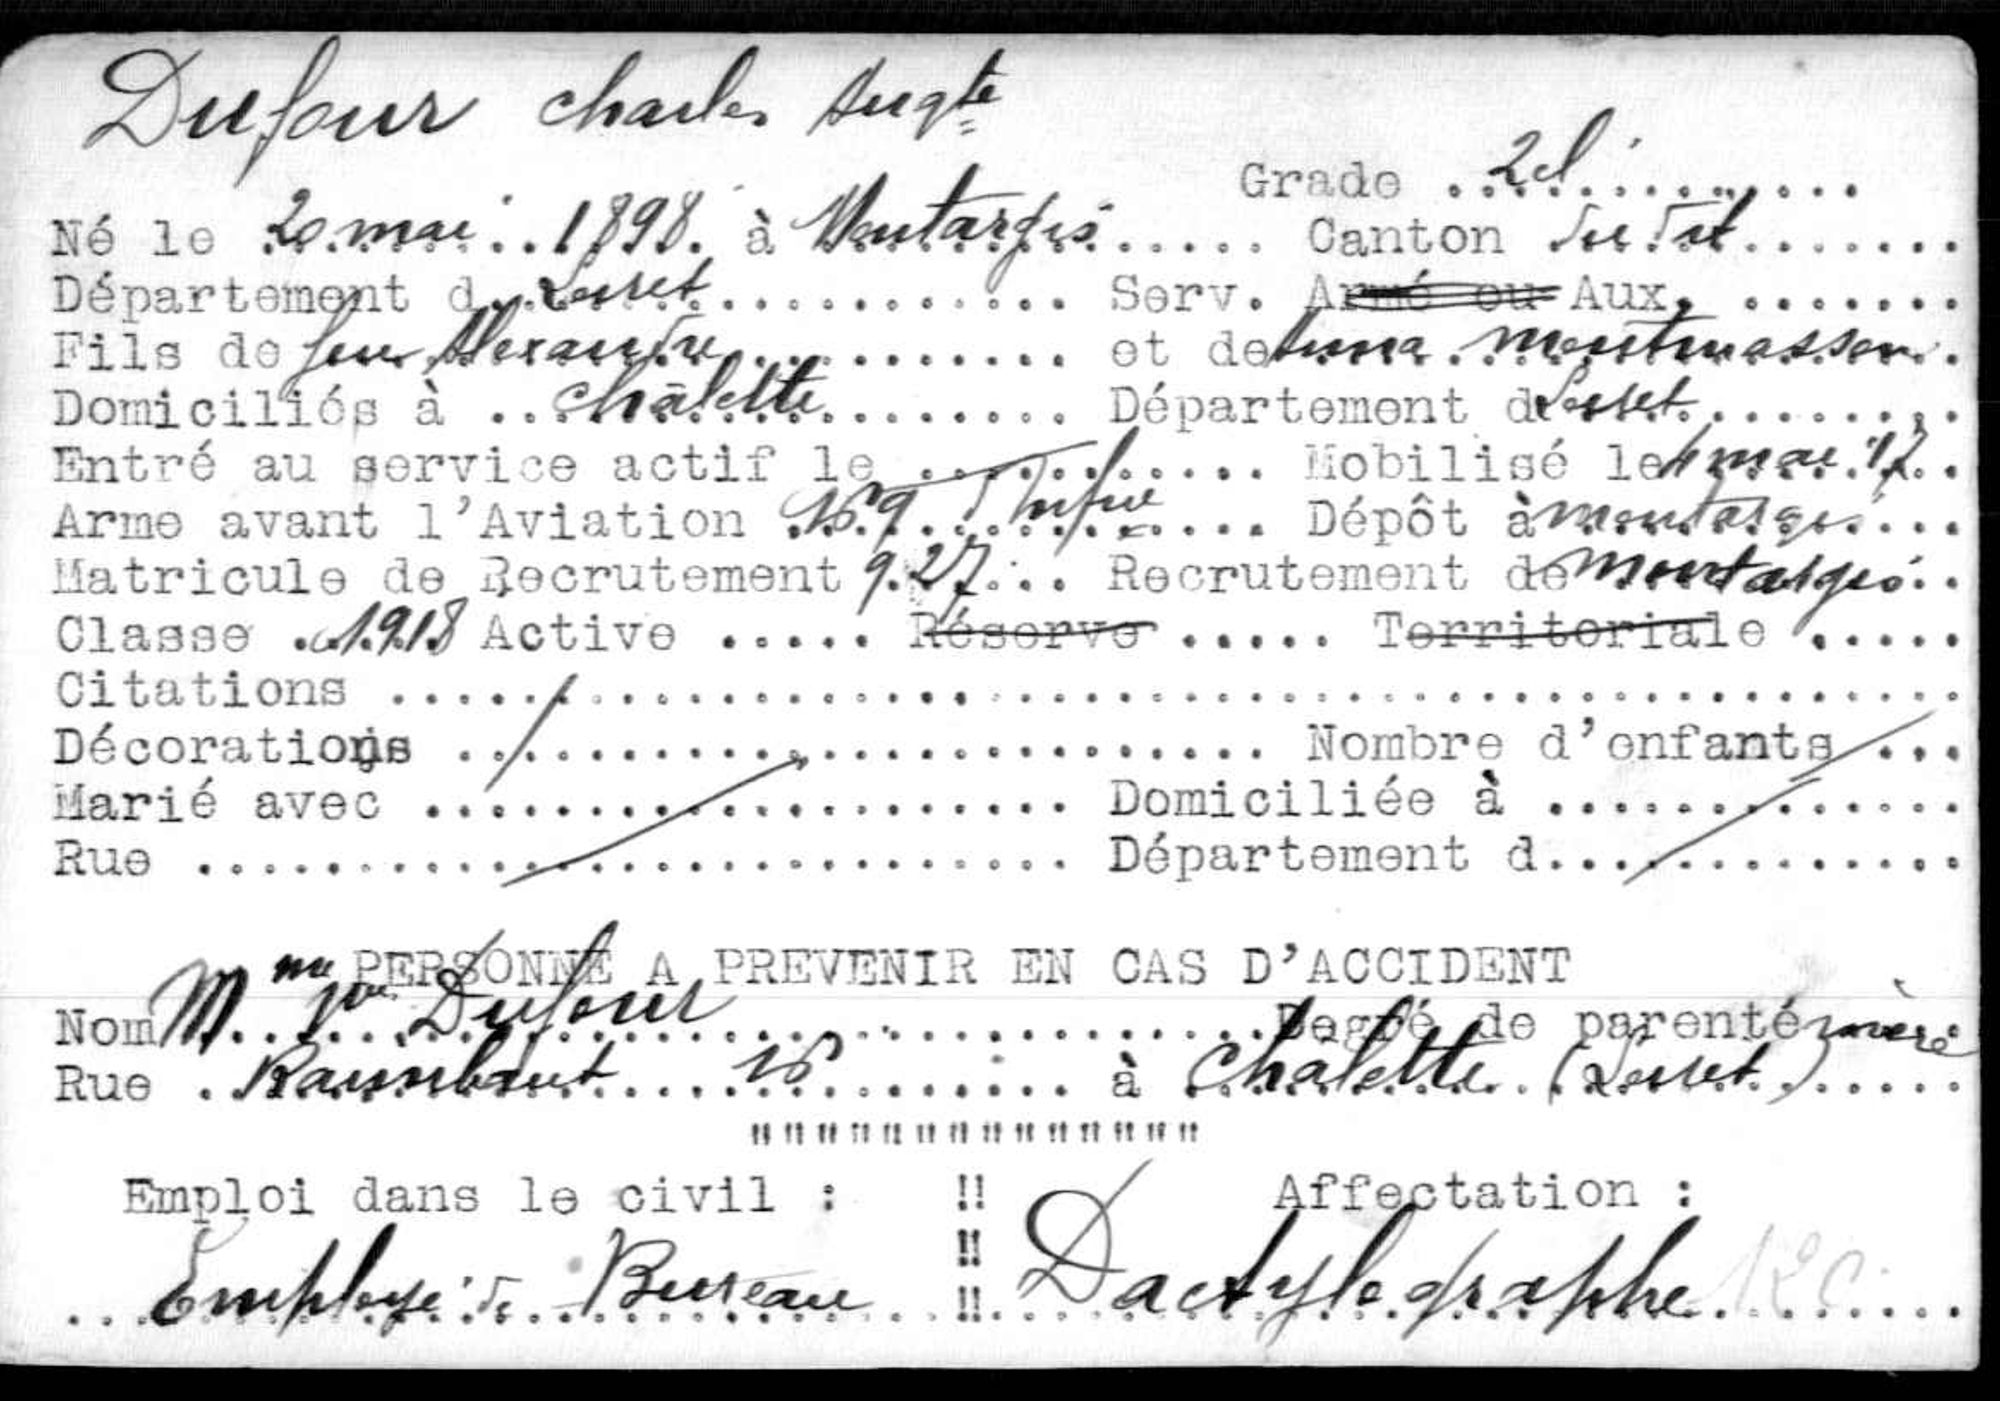 Dufour Charles Augte
Grade .. 2cl ...........
Né le 20 mai .. 1898. à Montargis ..... Canton du dit .......
Département d. Loiret ............ Serv. Armé ou Aux. .......
Fils de feu Alexandre .......... et de Anna Montmasson ..
Domiciliés à .. Châlette ........ Département d Loiret ........
Entré au service actif le .......... Mobilisé le mai 17 ..
Arme avant l'Aviation .169. d'Infie .... Dépôt à Montargis ...
Matricule de Recrutement 927 ... Recrutement de Montargis ..
Classe . 1918 Active ..... Réserve ..... Territoriale .....
Citations ................................................
Décorations ......................... Nombre d'enfants ...
Marié avec .................... Domiciliée à .............
Rue ........................... Département d.............
PERSONNE A PREVENIR EN CAS D'ACCIDENT
Nom Mme Vve Dufour .................. Degré de parenté mère
Rue . Raimbaut .... 16 .......... à Châlette (Loiret) .....
"""""""""""""" 
Emploi dans le civil : !! Affectation :
!!
... Employé de Bureau .. !! Dactylographe ........